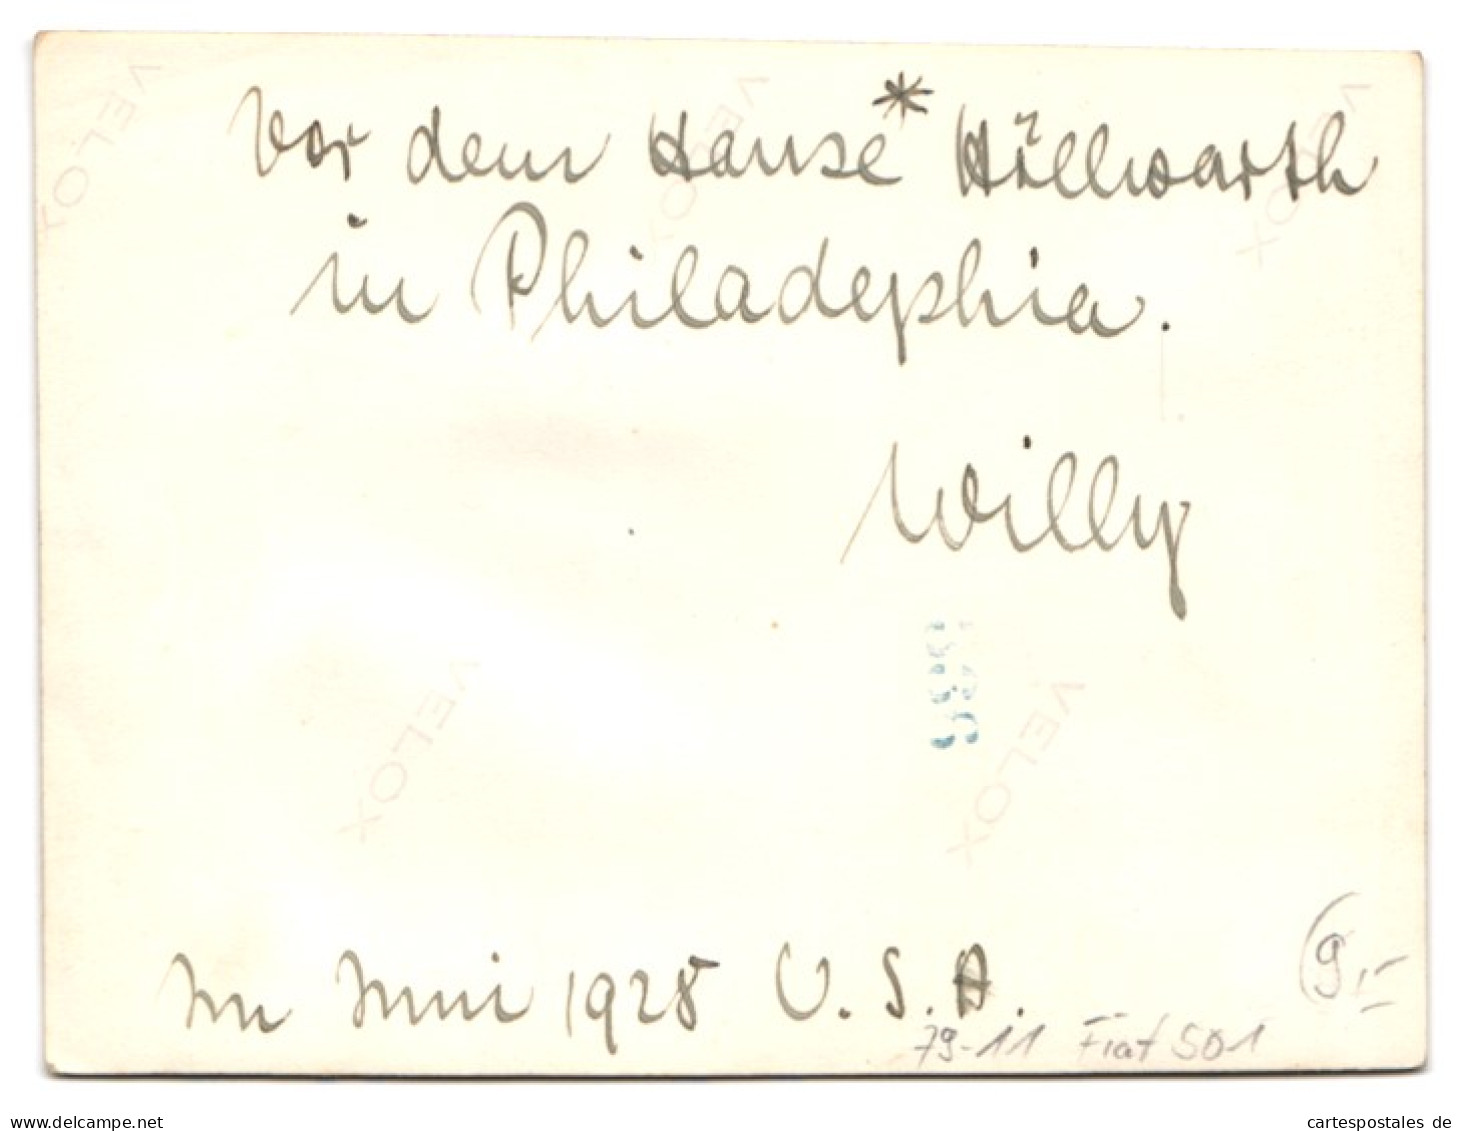 VELOX VELOX VELOX
Vor dem Hause* Höllwarth
in Philadephia.
Willy
VELOX VELOX
Im Juni 1928 U.S.A.
(9,-
79-11 Fiat 501
delcampe.net
cartespostales de